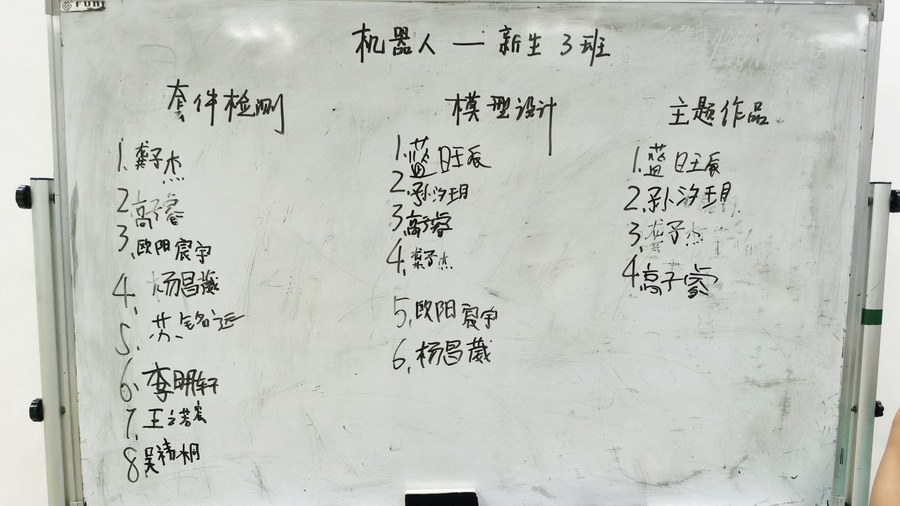 机器人 — 新生 3 班
套件检测
1. 龚子杰
2. 高子睿
3. 欧阳宸宇
4. 杨昌葳
5. 苏铭远
6. 李明轩
7. 王
8. 吴禧桐
模型设计
1. 蓝日旺辰
2. 孙汐玥
3. 高子睿
4. 龚子杰
5. 欧阳宸宇
6. 杨昌葳
主题作品
1. 蓝日旺辰
2. 孙汐玥
3. 龚子杰
4. 高子睿